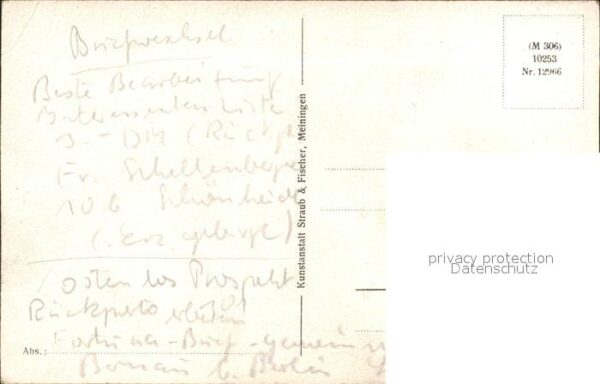 Briefwechsel
Beste Bearbeitung
Interessenten Liste
3.- DM (Rückp
Fr. Schellenberger
10 b Schönheide
(Erzgebirge)
Kostenlos Prospekt
Rückporto erbeten!
Fortuna-Brief-gemein
Bernau b. Berlin
Abs.:
Kunstanstalt Straub & Fischer, Meiningen
(M 306)
10253
Nr. 12966
privacy protection
Datenschutz